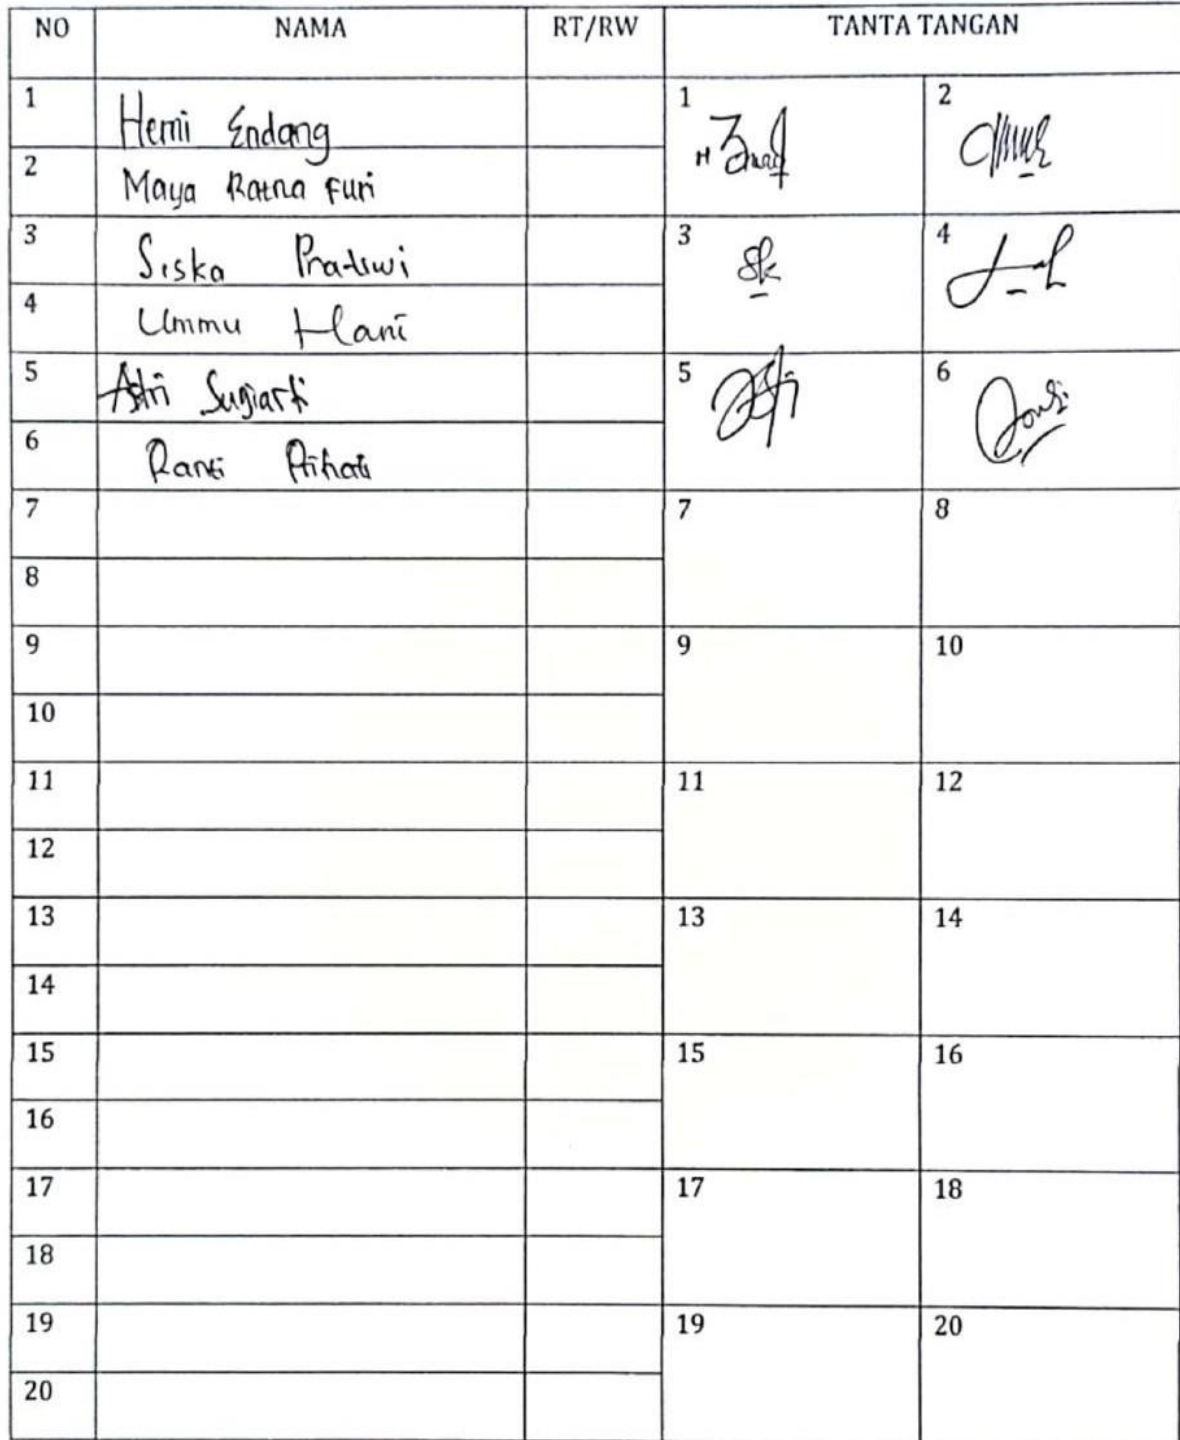 NO NAMA RT/RW TANTA TANGAN
1 Herni Endang 1 2
2 Maya Ratna Furi
3 Siska Pratiwi 3 4
4 Ummu Hani
5 Astri Sugiarti 5 6
6 Ranti
7 7 8
8
9 9 10
10
11 11 12
12
13 13 14
14
15 15 16
16
17 17 18
18
19 19 20
20